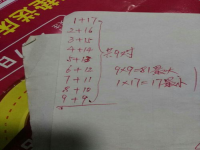 1+17
2+16
3+15
4+14
5+13
6+12
7+11
8+10
9+9
共9对
9×9=81最大
1×17=17最小